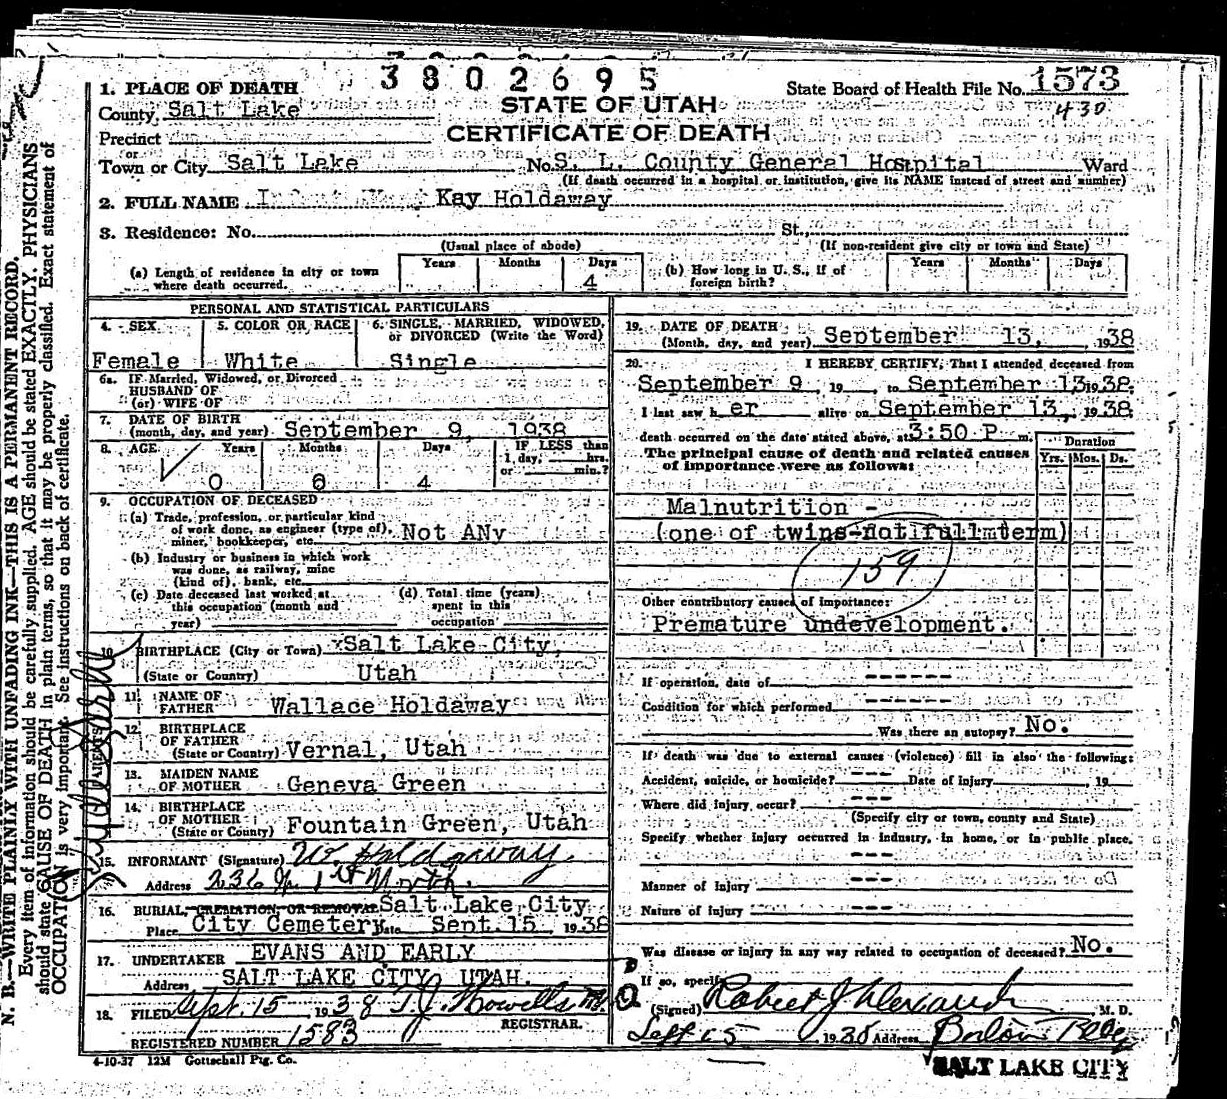 3802695
1. PLACE OF DEATH
State Board of Health File No. 1573
County Salt Lake
STATE OF UTAH
430
Precinct
CERTIFICATE OF DEATH
or
Town or City Salt Lake No. S. L. County General Hospital Ward
(If death occurred in a hospital or institution, give its NAME instead of street and number)
2. FULL NAME Kay Holdaway
3. Residence: No. St.,
(Usual place of abode) (If non-resident give city or town and State)
(a) Length of residence in city or town where death occurred. Years Months Days 4
(b) How long in U. S., if of foreign birth? Years Months Days
PERSONAL AND STATISTICAL PARTICULARS
4. SEX 5. COLOR OR RACE 6. SINGLE, MARRIED, WIDOWED, or DIVORCED (Write the Word)
Female White Single
6a. IF Married, Widowed, or Divorced
HUSBAND OF
(or) WIFE OF
7. DATE OF BIRTH
(month, day, and year) September 9, 1938
8. AGE Years Months Days IF LESS than
1 day, hrs.
or min.?
0 0 4
9. OCCUPATION OF DECEASED
(a) Trade, profession, or particular kind
of work done, as engineer (type of),
miner, bookkeeper, etc. Not ANy
(b) Industry or business in which work
was done, as railway, mine
(kind of), bank, etc.
(c) Date deceased last worked at
this occupation (month and
year)
(d) Total time (years)
spent in this
occupation
10. BIRTHPLACE (City or Town) Salt Lake City,
(State or Country) Utah
11. NAME OF
FATHER Wallace Holdaway
12. BIRTHPLACE
OF FATHER
(State or Country) Vernal, Utah
13. MAIDEN NAME
OF MOTHER Geneva Green
14. BIRTHPLACE
OF MOTHER
(State or County) Fountain Green, Utah
15. INFORMANT (Signature) W. Holdaway
Address 236 W. 1st North.
16. BURIAL, CREMATION, OR REMOVAL Salt Lake City
Place City Cemetery Date Sept. 15 1938
17. UNDERTAKER EVANS AND EARLY
Address SALT LAKE CITY, UTAH.
18. FILED Sept. 15, 1938 T.J. Howells M.D.
REGISTRAR.
REGISTERED NUMBER 1583
4-10-37 12M Gottschall Ptg. Co.
19. DATE OF DEATH
(Month, day, and year) September 13, 1938
20. I HEREBY CERTIFY, That I attended deceased from
September 9, 19 to September 13 1938.
I last saw h er alive on September 13, 1938
death occurred on the date stated above, at 3:50 P m.
The principal cause of death and related causes
of importance were as follows:
Duration
Yrs. Mos. Ds.
Malnutrition -
(one of twins-not full term)
159
Other contributory causes of importance:
Premature undevelopment.
If operation, date of ------
Condition for which performed ------
Was there an autopsy? No.
If death was due to external causes (violence) fill in also the following:
Accident, suicide, or homicide? --- Date of injury , 19
Where did injury occur? ---
(Specify city or town, county and State)
Specify whether injury occurred in industry, in home, or in public place.
---
Manner of injury ---
Nature of injury ---
Was disease or injury in any way related to occupation of deceased? No.
If so, specify
(Signed) Robert J Alexander M. D.
1938 Address
SALT LAKE CITY
N. B.—WRITE PLAINLY WITH UNFADING INK—THIS IS A PERMANENT RECORD.
Every item of information should be carefully supplied. AGE should be stated EXACTLY. PHYSICIANS
should state CAUSE OF DEATH in plain terms, so that it may be properly classified. Exact statement of
OCCUPATION is very important. See instructions on back of certificate.